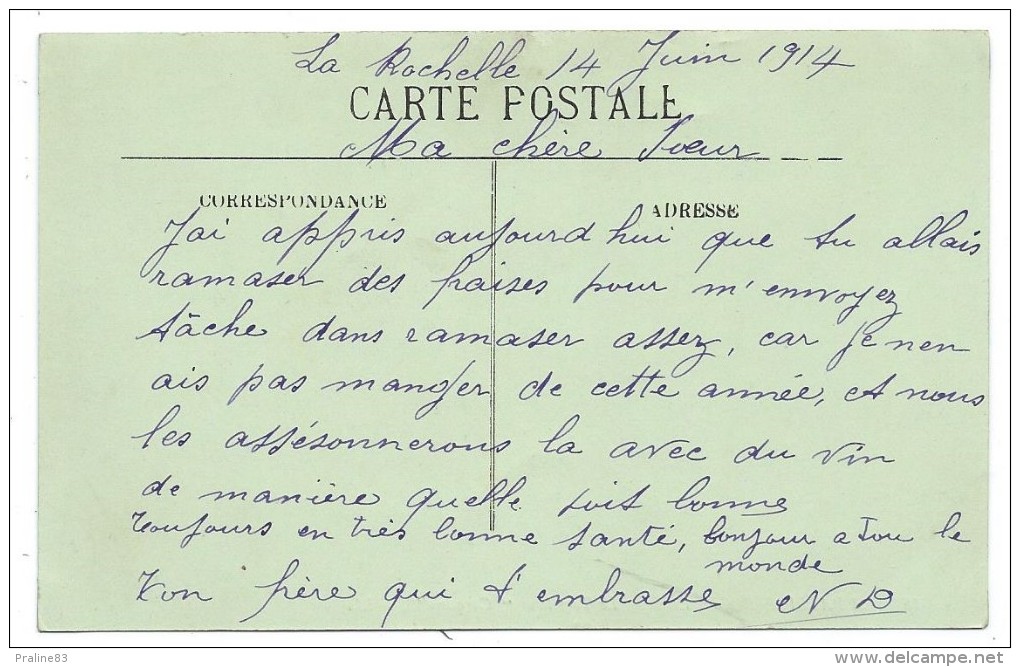 La Rochelle 14 Juin 1914
CARTE POSTALE
Ma chère Sœur
CORRESPONDANCE
ADRESSE
J'ai appris aujourd hui que tu allais
ramaser des fraises pour m'envoyez
tâche dans ramaser assez, car je nen
ais pas manger de cette année, et nous
les assésonnerons la avec du vin
de manière quelle soit bonne
Toujours en très bonne santé, bonjour a tou le
monde
Ton frère qui t'embrasse N D
Praline83
delcampe.net